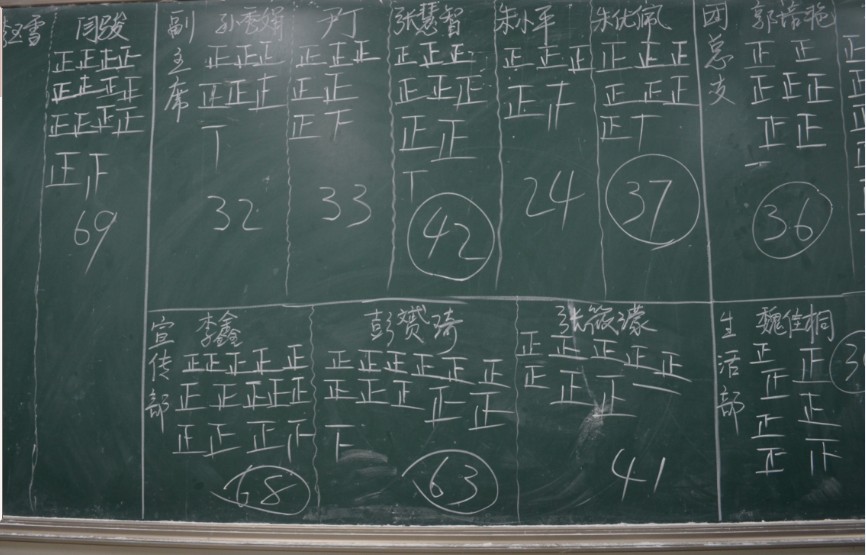 闫骏
正正正正
正正正正
正正正正
正正
69
副主席
尹丁
正正正
正正
正下
33
正正正
正正正
丅
32
张慧智
正正正
正正正
正正
丅
42
朱小平
正正正
正
24
朱优佩
正正正
正正正
正丅
37
团总支
正正
正正正
正正
一
36
宣传部
李鑫
正正正正正
正正正正正
正正正
68
彭赟琦
正正正正正正
正正正正正
下
63
张筱濛
正正正正正
正正正
41
生活部
魏佳桐
正正
正
正正
正